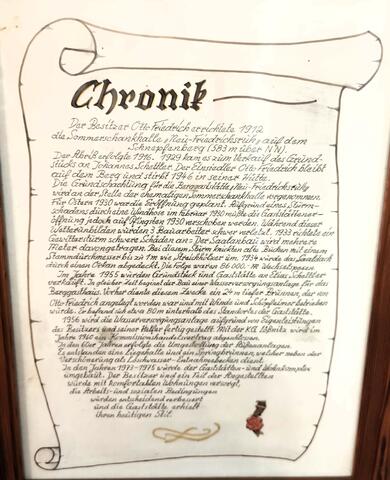 Chronik
Der Besitzer Otto Friedrich errichtete 1912
die Sommerschankhalle „Neu-Friedrichsruh“ auf dem
Schnepfenberg (583 m über NN).
Der Abriß erfolgte 1916. 1929 kam es zum Verkauf des Grund-
stücks an Johannes Schädler. Der Einsiedler Otto Friedrich bleibt
auf dem Berg und stirbt 1946 in seiner Hütte.
Die Grundschachtung für die Berggaststätte „Neu-Friedrichsruh“
wird an der Stelle der ehemaligen Sommerschankhalle vorgenommen.
Für Ostern 1930 war die Eröffnung geplant. Aufgrund eines Sturm-
schadens durch eine Windhose im Februar 1930 mußte die Gaststätten-
öffnung jedoch auf Pfingsten 1930 verschoben werden. Während dieser
Wetterunbilden wurden 3 Bauarbeiter schwer verletzt. 1933 richtete ein
Gewittersturm schwere Schäden an: Der Saalanbau wird mehrere
Meter davongetragen. Bei diesem Sturm knickten alte Buchen mit einem
Stammdurchmesser bis zu 1 m wie Streichhölzer um. 1934 wurde das Saaldach
durch einen Orkan abgedeckt. Die Folge waren 86 000.- M
Im Jahre 1955 wurden Grundstück und Gaststätte an Elias Schettler
verkauft. In gleicher Zeit beginnt der Bau einer Wasserversorgungsanlage für das
Berggasthaus. Vorher diente diesem Zwecke ein 24 m tiefer Brunnen, der von
Otto Friedrich angelegt worden war und mit Winde und Schöpfeimer betrieben
wurde. Er befand sich etwa 80 m unterhalb des Standortes der Gaststätte.
1956 wird die Wasserversorgungsanlage aufgrund von Eigenleistungen
des Besitzers und seiner Helfer fertig gestellt. Mit der KG Lößnitz wird im
Jahre 1960 ein Kommissionshandelsvertrag abgeschlossen.
In den 60er Jahren erfolgte die Umgestaltung der Außenanlagen.
Es entstanden eine Liegehalle und ein Springbrunnen, welcher neben der
Verschönerung als Löschwasser-Entnahmebecken dient.
In den Jahren 1973-1975 wurde der Gaststätten- und Wohnkomplex
umgebaut. Der Besitzer und ein Teil der Angestellten
wurde mit komfortablen Wohnungen versorgt,
die Arbeits- und sozialen Bedingungen
wurden entscheidend verbessert
und die Gaststätte erhielt
ihren heutigen Stil.